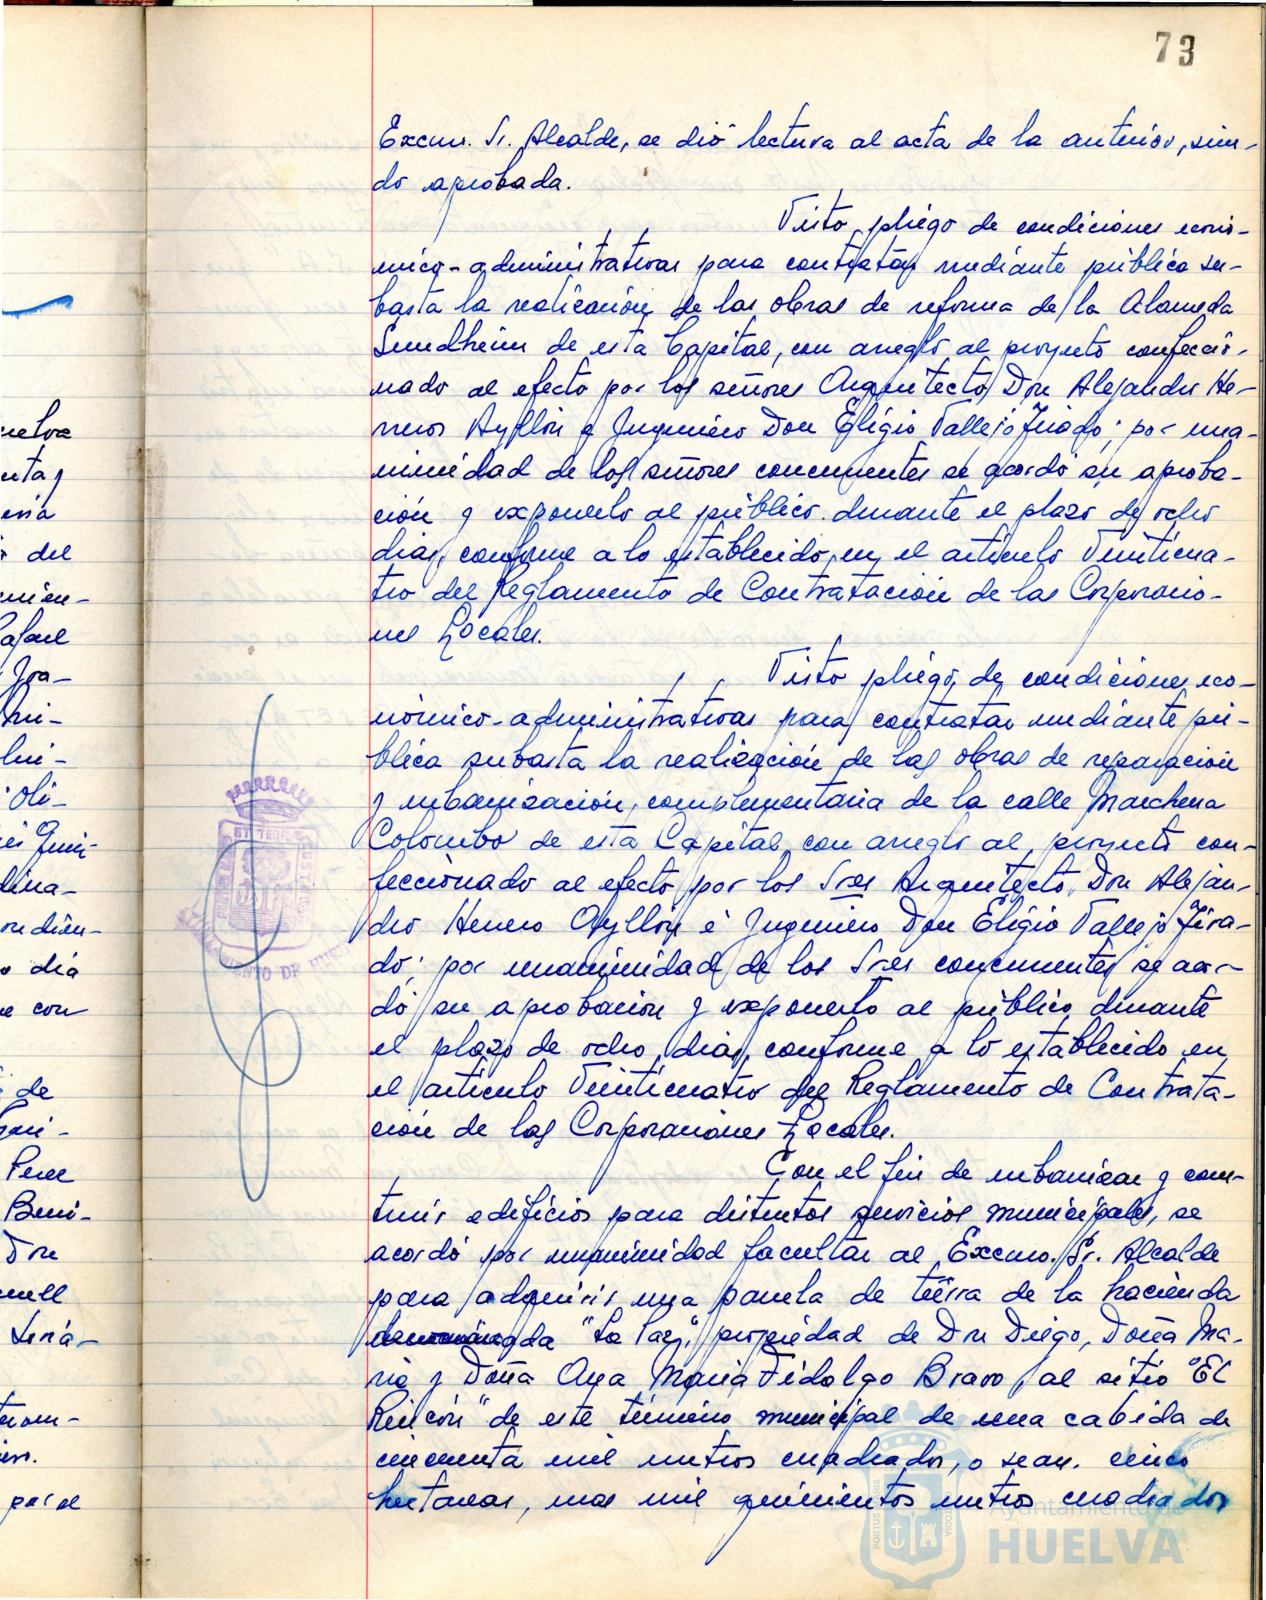 73
Excmo. Sr. Alcalde, se dió lectura al acta de la anterior, sien-
do aprobada.
Visto pliego de condiciones econó-
mico-administrativas para contratar mediante pública su-
basta la realización de las obras de reforma de la Alameda
Sundheim de esta Capital, con arreglo al proyecto confeccio-
nado al efecto por los señores Arquitecto Don Alejandro He-
rrero Ayllón e Ingeniero Don Eligio Vallejo Tirado; por una-
nimidad de los señores concurrentes se acordó su aproba-
ción y exponerlo al público durante el plazo de ocho
días, conforme a lo establecido en el artículo Veinticua-
tro del Reglamento de Contratación de las Corporacio-
nes Locales.
Visto pliego de condiciones eco-
nómico-administrativas para contratar mediante pú-
blica subasta la realización de las obras de reparación
y urbanización complementaria de la calle Marchena
Colombo de esta Capital, con arreglo al proyecto con-
feccionado al efecto por los Sres Arquitecto Don Alejan-
dro Herrero Ayllón e Ingeniero Don Eligio Vallejo Tira-
do; por unanimidad de los Sres concurrentes se acor-
dó su aprobación y exponerlo al público durante
el plazo de ocho días, conforme a lo establecido en
el artículo Veinticuatro del Reglamento de Contrata-
ción de las Corporaciones Locales.
Con el fin de urbanizar y cons-
truir edificios para distintos servicios municipales, se
acordó por unanimidad facultar al Excmo. Sr. Alcalde
para adquirir una parcela de tierra de la hacienda
denominada "La Paz", propiedad de Don Diego, Doña Ma-
ría y Doña Ana María Fidalgo Bravo, al sitio "El
Rincón" de este término municipal de una cabida de
cincuenta mil metros cuadrados, o sean cinco
hectáreas, mas mil quinientos metros cuadrados
Ayuntamiento de
HUELVA